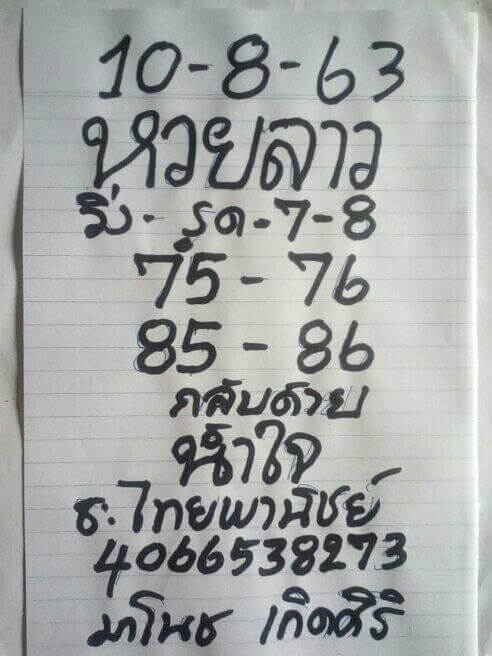 10-8-63
หวยลาว
วิ่ง-รูด-7-8
75-76
85-86
กลับด้วย
น้ำใจ
ธ.ไทยพานิชย์
4066538273
มาโนช เกิดศิริ